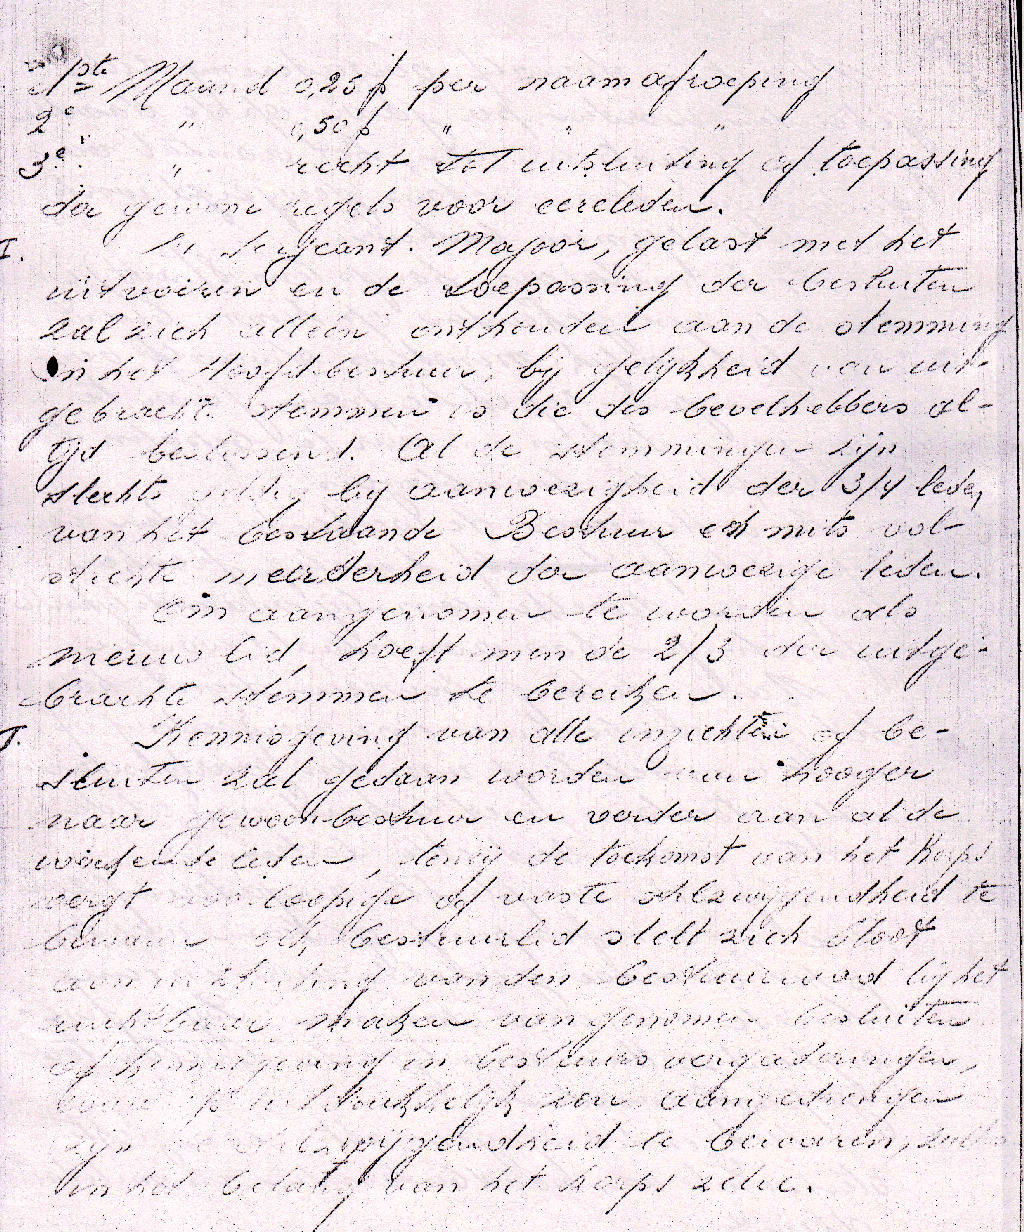 1ste Maand 0,25 f, per naamafroeping
2e " 0,50 f " " "
3e " recht tot uitsluiting of toepassing
der gewone regels voor eereleden.
I. De Sergeant-Majoor, gelast met het
uitvoeren en de toepassing der besluiten
zal zich alleen onthouden aan de stemming
in het Hoofdbestuur, bij gelijkheid van uit-
gebrachte stemmen is die des bevelhebbers al-
tijd beslissend. Al de stemmingen zijn
slechts geldig bij aanwezigheid der 3/4 leden
van het bestaande Bestuur en mits vol-
strekte meerderheid der aanwezige leden.
Om aangenomen te worden als
nieuw lid, hoeft men de 2/3 der uitge-
brachte stemmen te bereiken.
I. Kennisgeving van alle inzichten of be-
sluiten zal gedaan worden van hooger
naar gewoon bestuur en verder aan al de
werkende leden, tenzij de toekomst van het Korps
vergt voorloopige of vaste stilzwijgendheid te
bewaren elk bestuurlid stelt zich bloot
aan uitsluiting van den bestuurraad bij het
ruchtbaar maken van genomen besluiten
of kennisgeving in bestuursvergaderingen,
uitdrukkelijk zou aangedrongen
zijn stilzwijgendheid te bewaren, zulks
in het belang van het korps zelve.